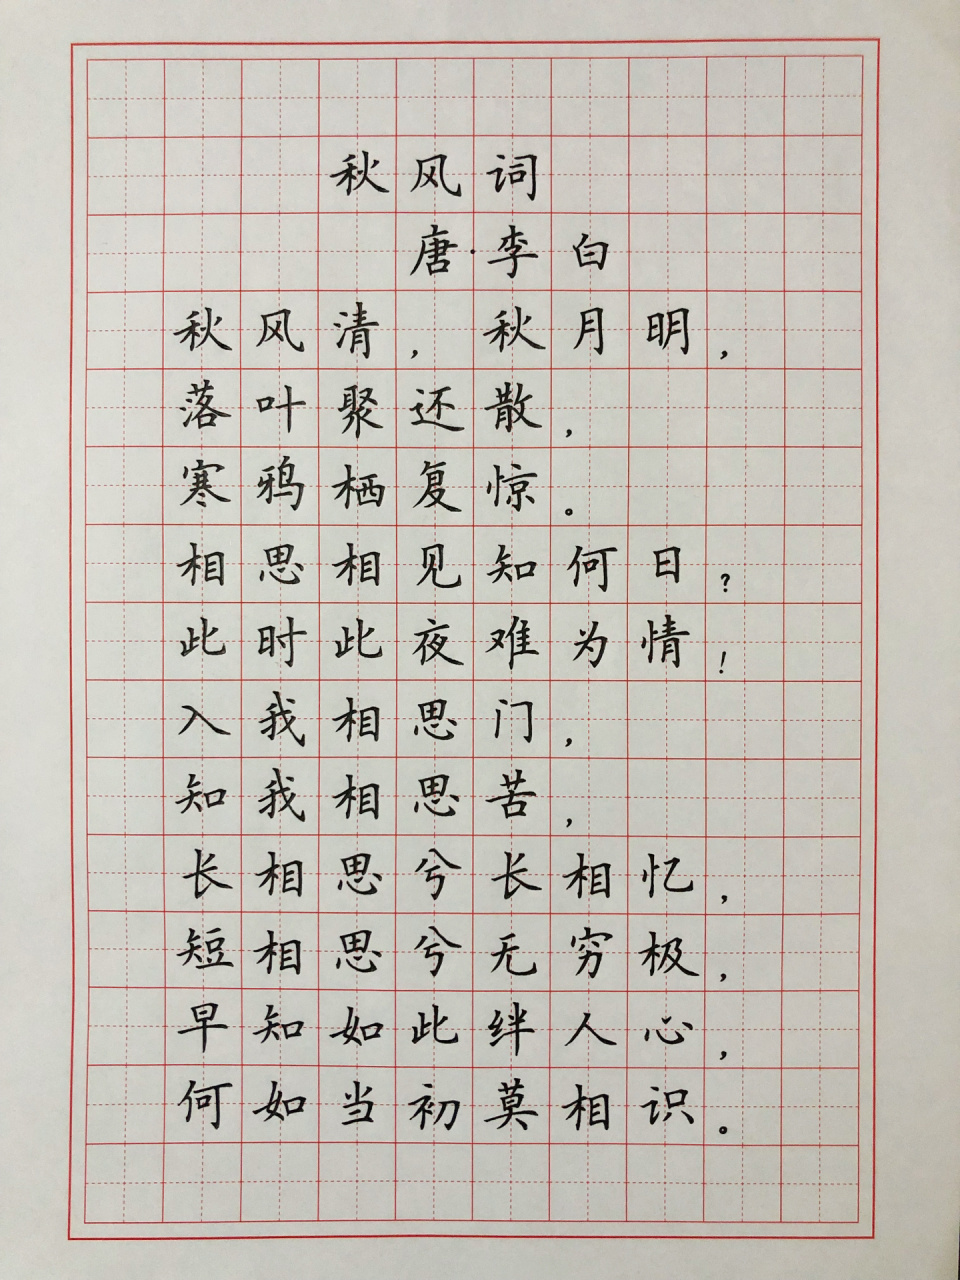 秋风词
唐·李白
秋风清，秋月明，
落叶聚还散，
寒鸦栖复惊。
相思相见知何日？
此时此夜难为情！
入我相思门，
知我相思苦，
长相思兮长相忆，
短相思兮无穷极，
早知如此绊人心，
何如当初莫相识。